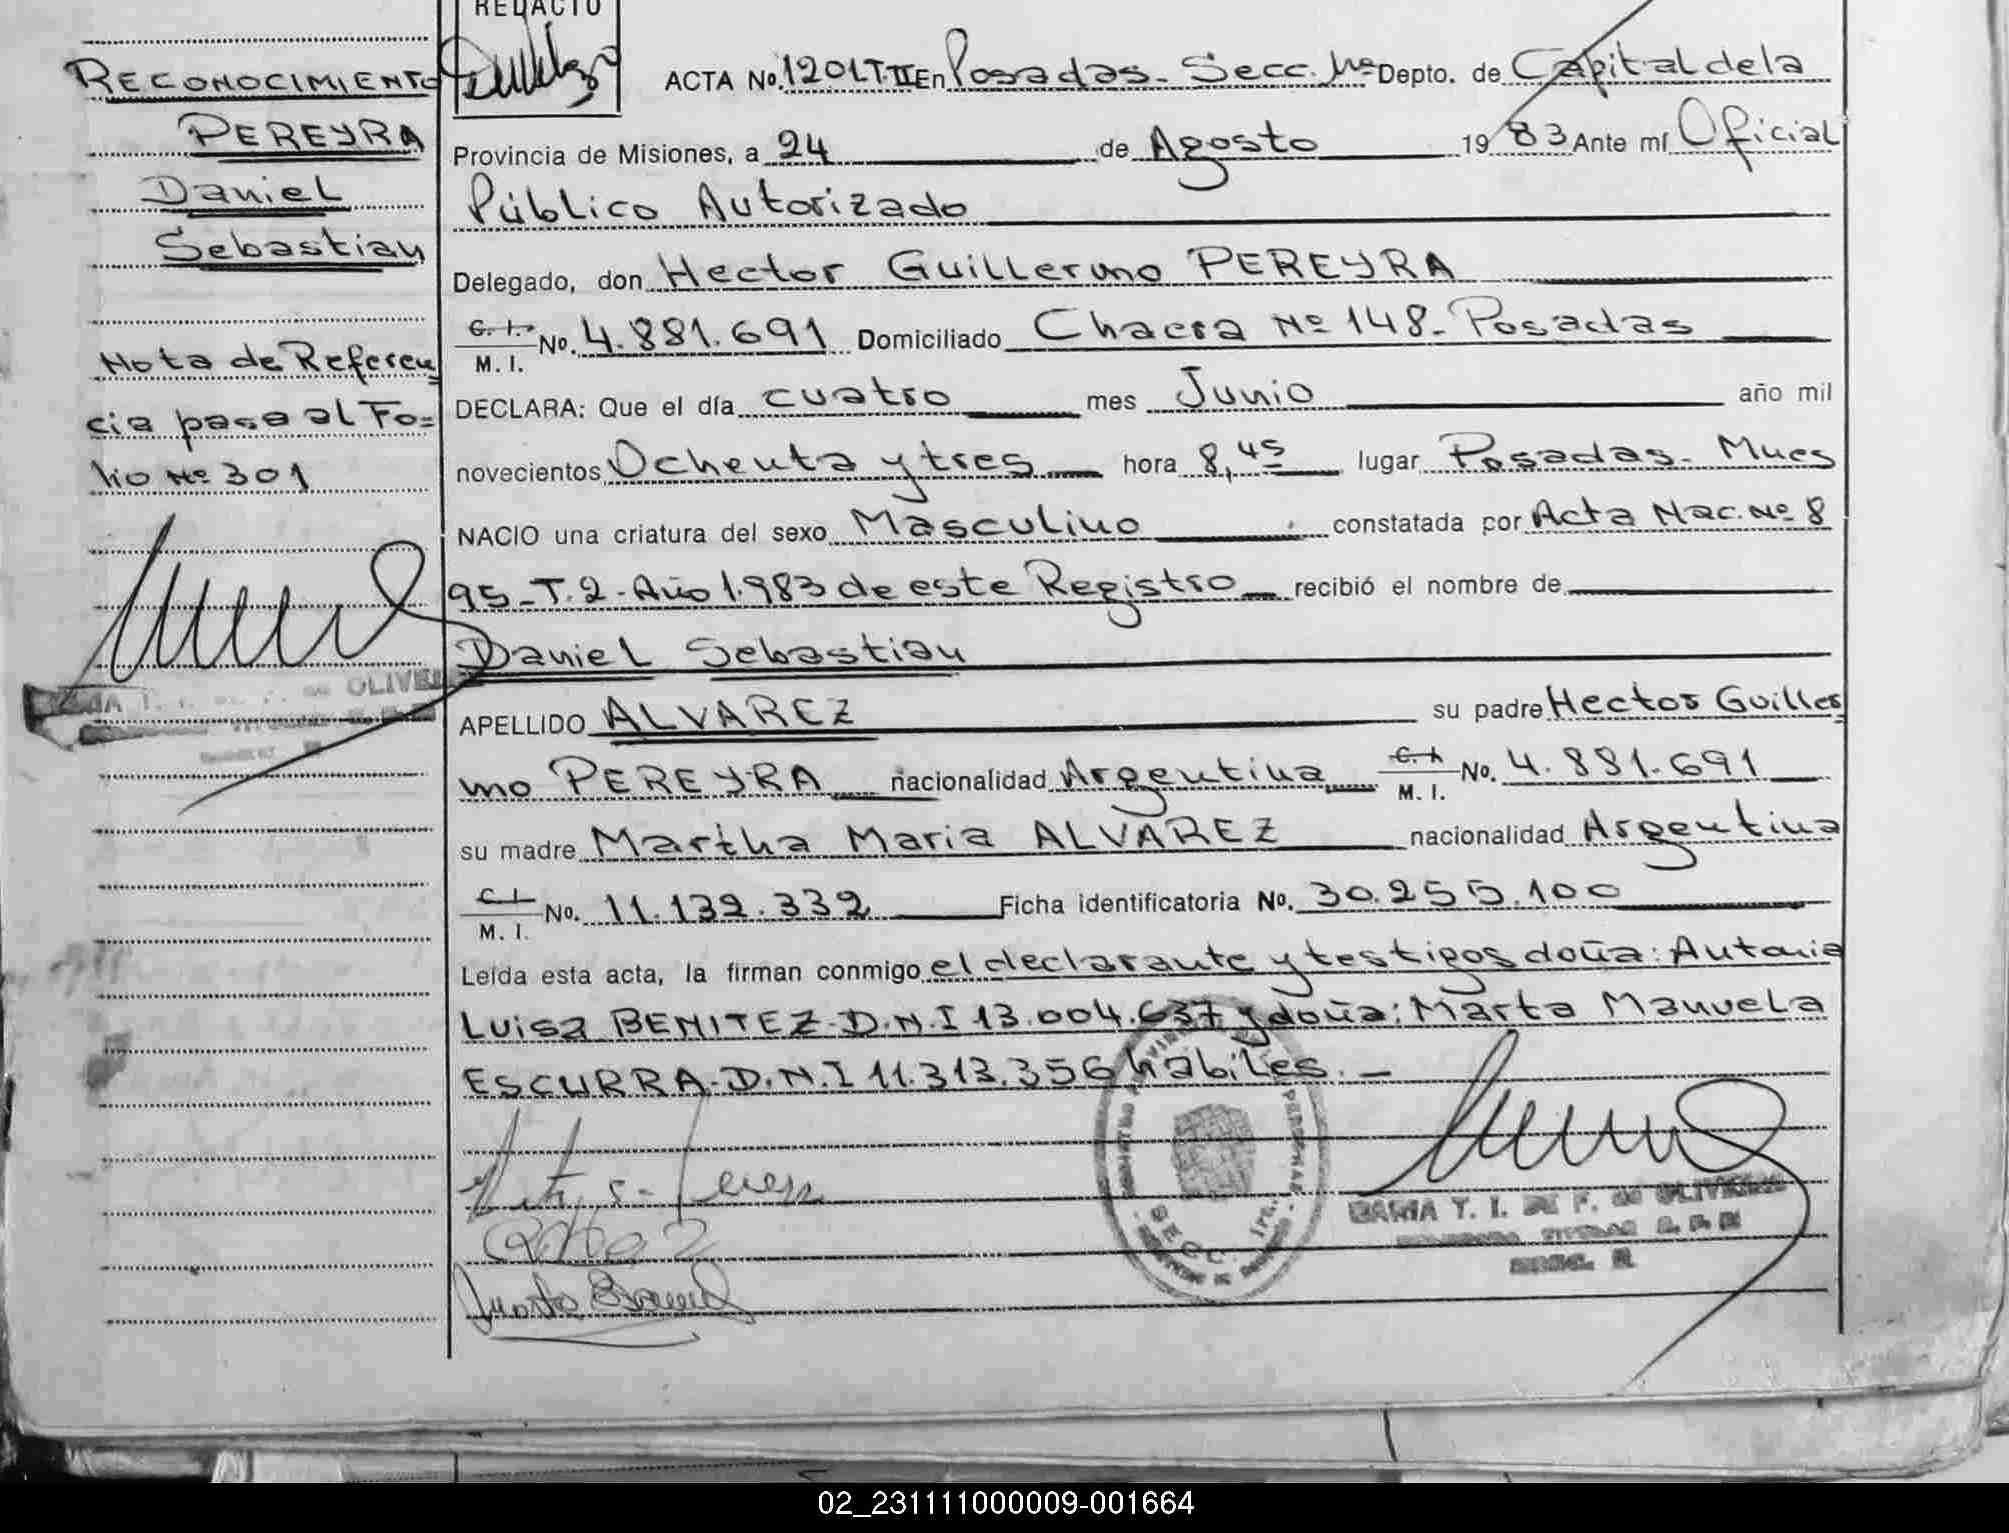 REDACTO
RECONOCIMIENTO
PEREYRA
Daniel
Sebastian
Nota de Referen
cia pasa al Fo=
lio Nº 301
ACTA No. 1201 T.II En Posadas - Secc. 1ra Depto. de Capital de la
Provincia de Misiones, a 24 de Agosto 1983 Ante mí Oficial
Público Autorizado
Delegado, don Hector Guillermo PEREYRA
C. I. M. I. No. 4.881.691 Domiciliado Chacra Nº 148 - Posadas
DECLARA: Que el día cuatro mes Junio año mil
novecientos Ochenta y tres hora 8,45 lugar Posadas - Mnes
NACIO una criatura del sexo Masculino constatada por Acta Nac. Nº 8
95 - T. 2 - Año 1.983 de este Registro recibió el nombre de
Daniel Sebastian
APELLIDO ALVAREZ su padre Hector Guiller
mo PEREYRA nacionalidad Argentina C. I. M. I. No. 4.881.691
su madre Martha Maria ALVAREZ nacionalidad Argentina
C. I. M. I. No. 11.132.332 Ficha identificatoria No. 30.255.100
Leída esta acta, la firman conmigo el declarante y testigos doña: Antonia
Luisa BENITEZ - D.N.I 13.004.637 y doña: Marta Manuela
ESCURRA - D.N.I 11.313.356 habiles. -
SECC. 1ra.
T. I. DE F. de OLIVEIRA
02_231111000009-001664